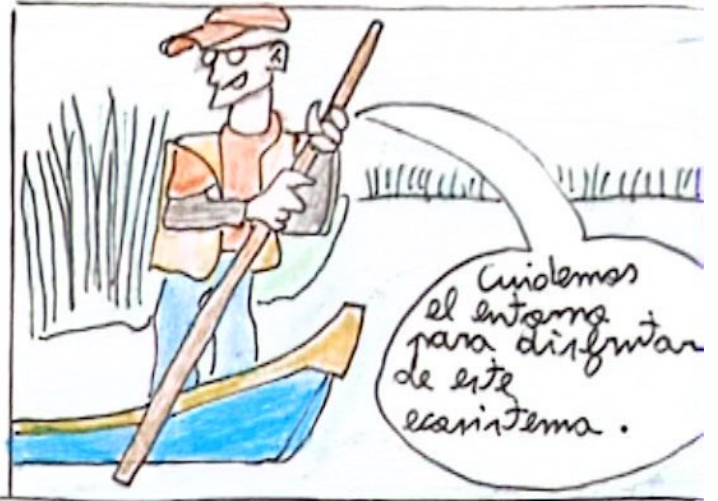 Cuidemos
el entorno
para disfrutar
de este
ecosistema.